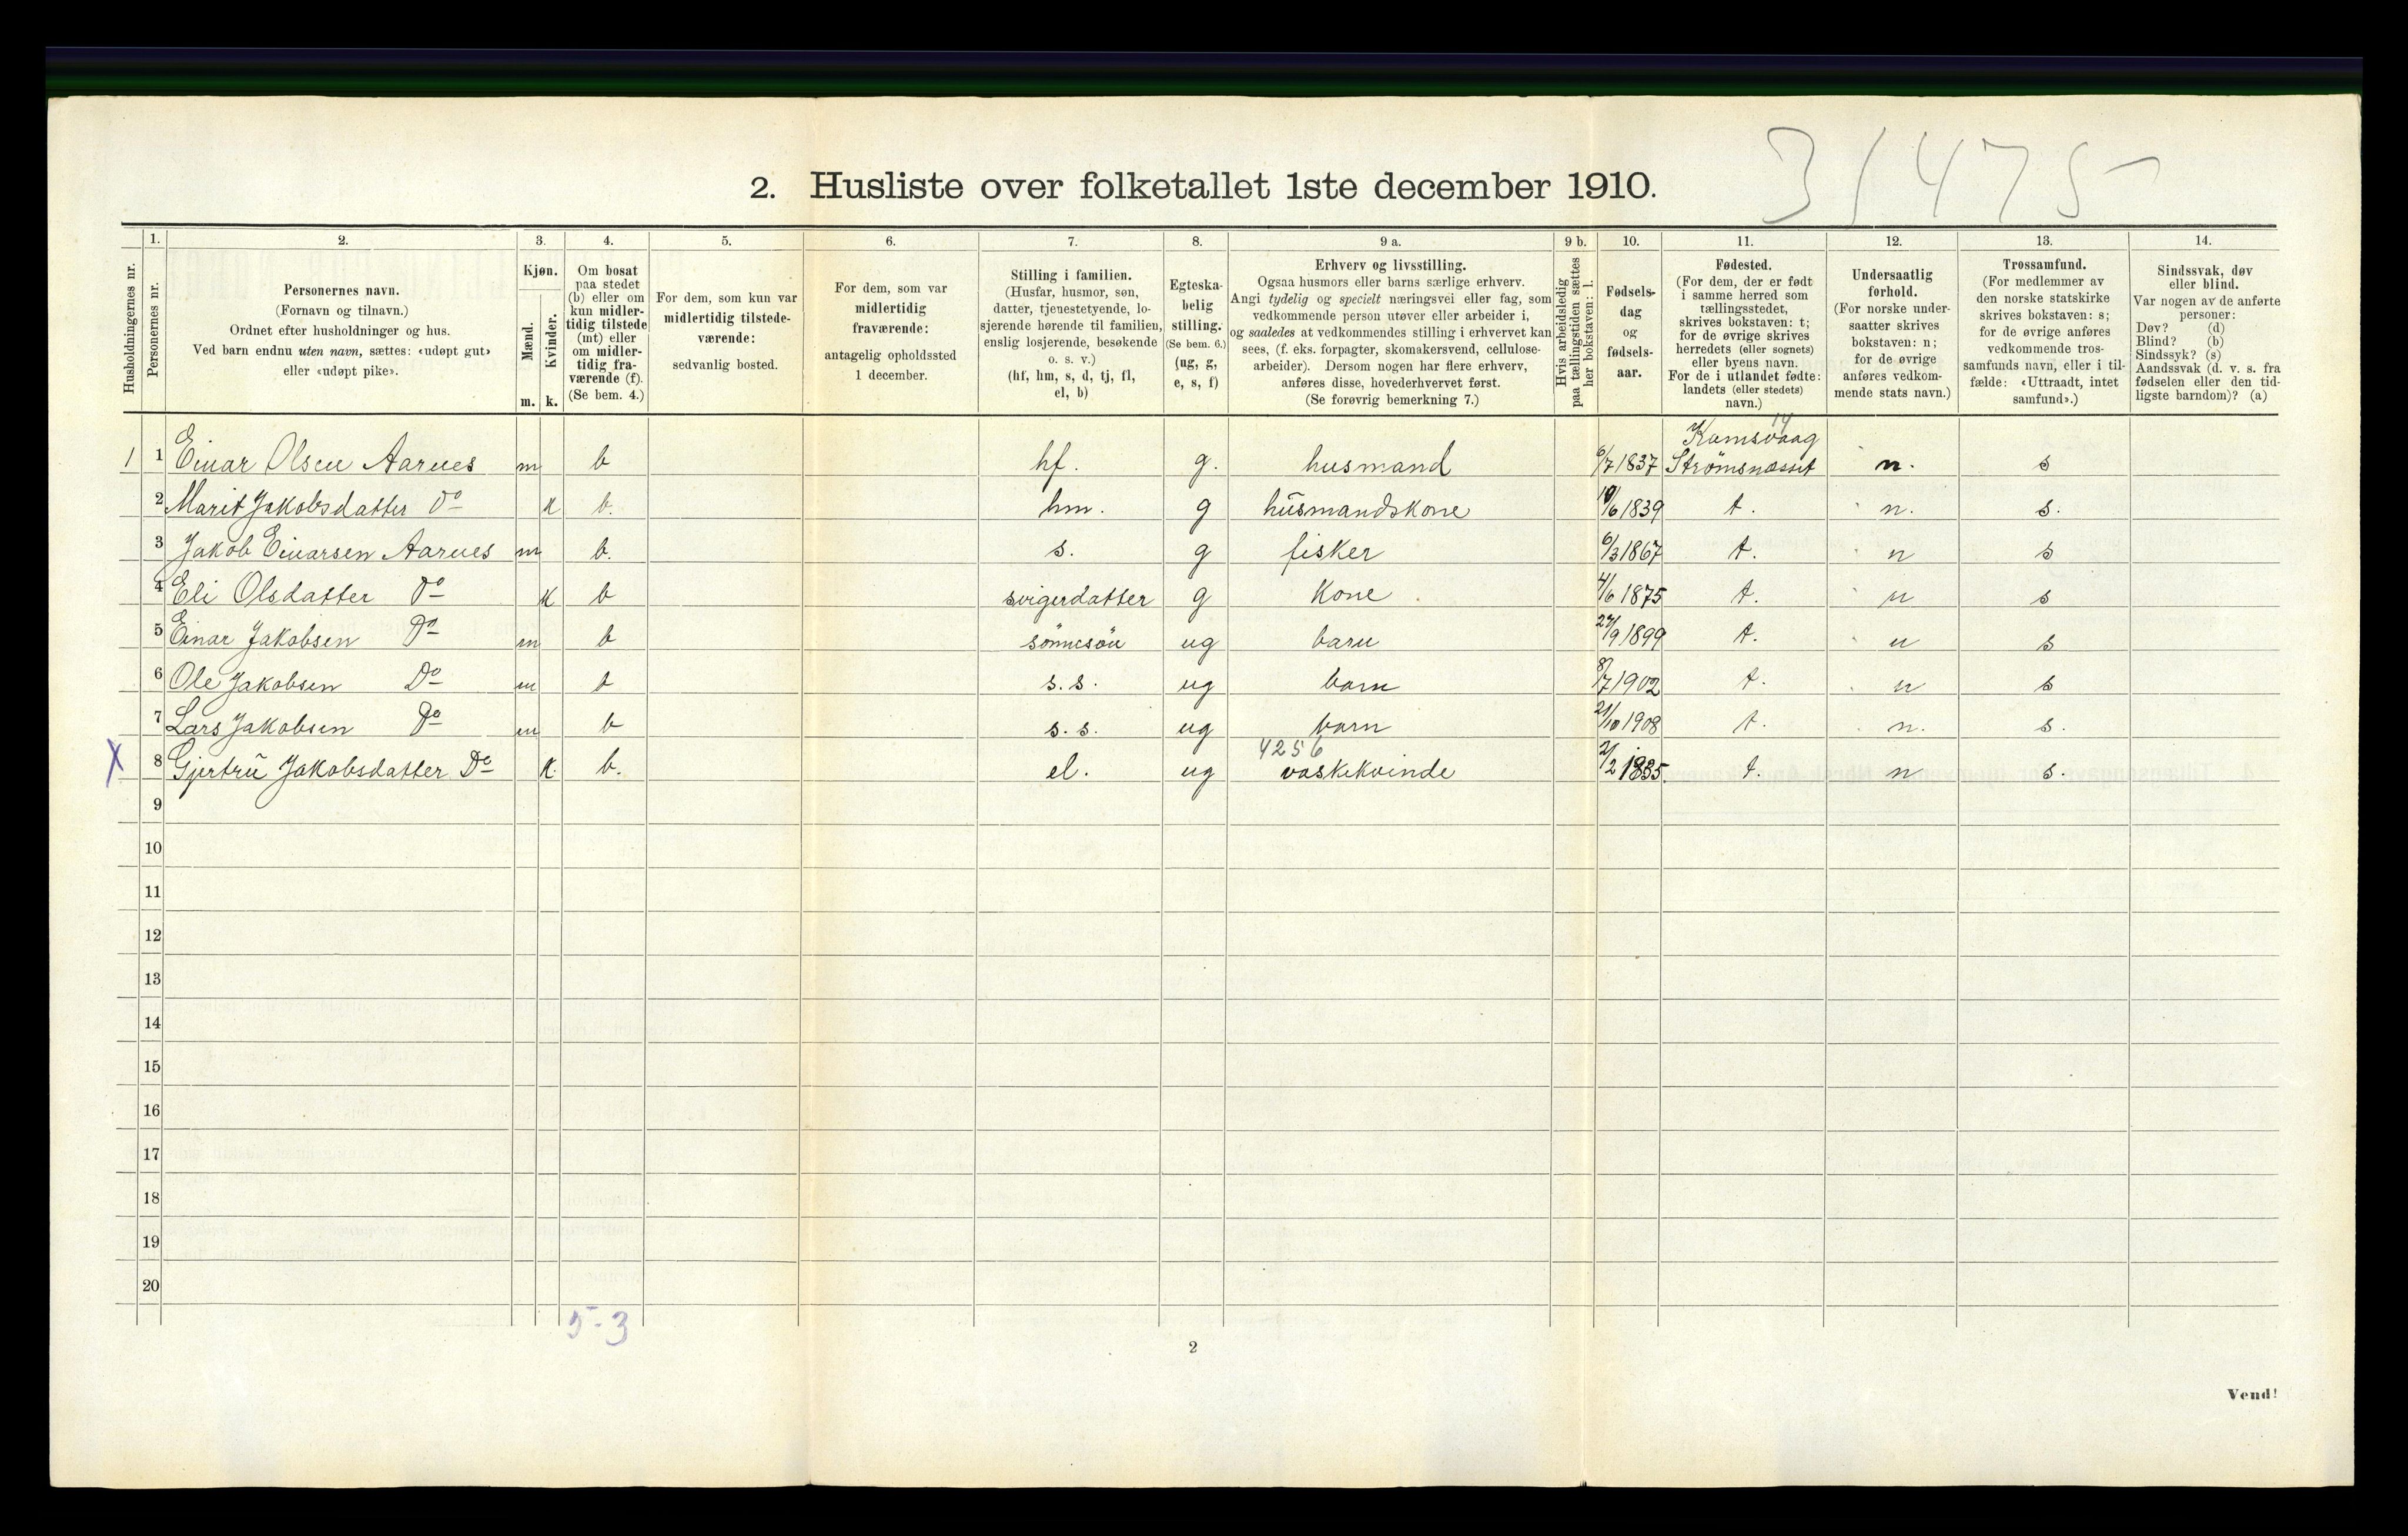 31475
2. Husliste over folketallet 1ste december 1910.
1. 2. 3. 4. 5. 6. 7. 8. 9 a. 9 b. 10. 11. 12. 13. 14.
Husholdningernes nr.
Personernes nr.
Personernes navn.
(Fornavn og tilnavn.)
Ordnet efter husholdninger og hus.
Ved barn endnu uten navn, sættes: «udøpt gut»
eller «udøpt pike».
Kjøn.
Mænd.
Kvinder.
m. k.
Om bosat
paa stedet
(b) eller om
kun midler-
tidig tilstede
(mt) eller
om midler-
tidig fra-
værende (f).
(Se bem. 4.)
For dem, som kun var
midlertidig tilstede-
værende:
sedvanlig bosted.
For dem, som var
midlertidig
fraværende:
antagelig opholdssted
1 december.
Stilling i familien.
(Husfar, husmor, søn,
datter, tjenestetyende, lo-
sjerende hørende til familien,
enslig losjerende, besøkende
o. s. v.)
(hf, hm, s, d, tj, fl,
el, b)
Egteska-
belig
stilling.
(Se bem. 6.)
(ug, g,
e, s, f)
Erhverv og livsstilling.
Ogsaa husmors eller barns særlige erhverv.
Angi tydelig og specielt næringsvei eller fag, som
vedkommende person utøver eller arbeider i,
og saaledes at vedkommendes stilling i erhvervet kan
sees, (f. eks. forpagter, skomakersvend, cellulose-
arbeider). Dersom nogen har flere erhverv,
anføres disse, hovederhvervet først.
(Se forøvrig bemerkning 7.)
Hvis arbeidsledig
paa tællingstiden sættes
her bokstaven: l.
Fødsels-
dag
og
fødsels-
aar.
Fødested.
(For dem, der er født
i samme herred som
tællingsstedet,
skrives bokstaven: t;
for de øvrige skrives
herredets (eller sognets)
eller byens navn.
For de i utlandet fødte:
landets (eller stedets)
navn.)
Undersaatlig
forhold.
(For norske under-
saatter skrives
bokstaven: n;
for de øvrige
anføres vedkom-
mende stats navn.)
Trossamfund.
(For medlemmer av
den norske statskirke
skrives bokstaven: s;
for de øvrige anføres
vedkommende tros-
samfunds navn, eller i til-
fælde: «Uttraadt, intet
samfund».)
Sindssvak, døv
eller blind.
Var nogen av de anførte
personer:
Døv? (d)
Blind? (b)
Sindssyk? (s)
Aandssvak (d. v. s. fra
fødselen eller den tid-
ligste barndom)? (a)
14
Kamsvaag
1 1 Einar Olsen Aarnes m b hf. g. husmand 6/7 1837 Strömsnæsset n. s
2 Marit Jakobsdatter Do k b. hm. g husmandskone 10/6 1839 t. n. s.
3 Jakob Einarsen Aarnes m b. s. g fisker 6/3 1867 t. n s
4 Eli Olsdatter Do k b svigerdatter g Kone 4/6 1875 t. n s
5 Einar Jakobsen Do m b sönnesön ug barn 27/9 1899 t. n s
6 Ole Jakobsen Do m b s.s. ug barn 8/7 1902 t. n s
7 Lars Jakobsen Do m b s.s. ug barn 21/10 1908 t. n. s.
4256
X 8 Gjertrü Jakobsdatter Do k. b. el. ug vaskekvinde 2/2 1835. t. n s.
9
10
11
12
13
14
15
16
17
18
19
20
5-3
2
Vend!